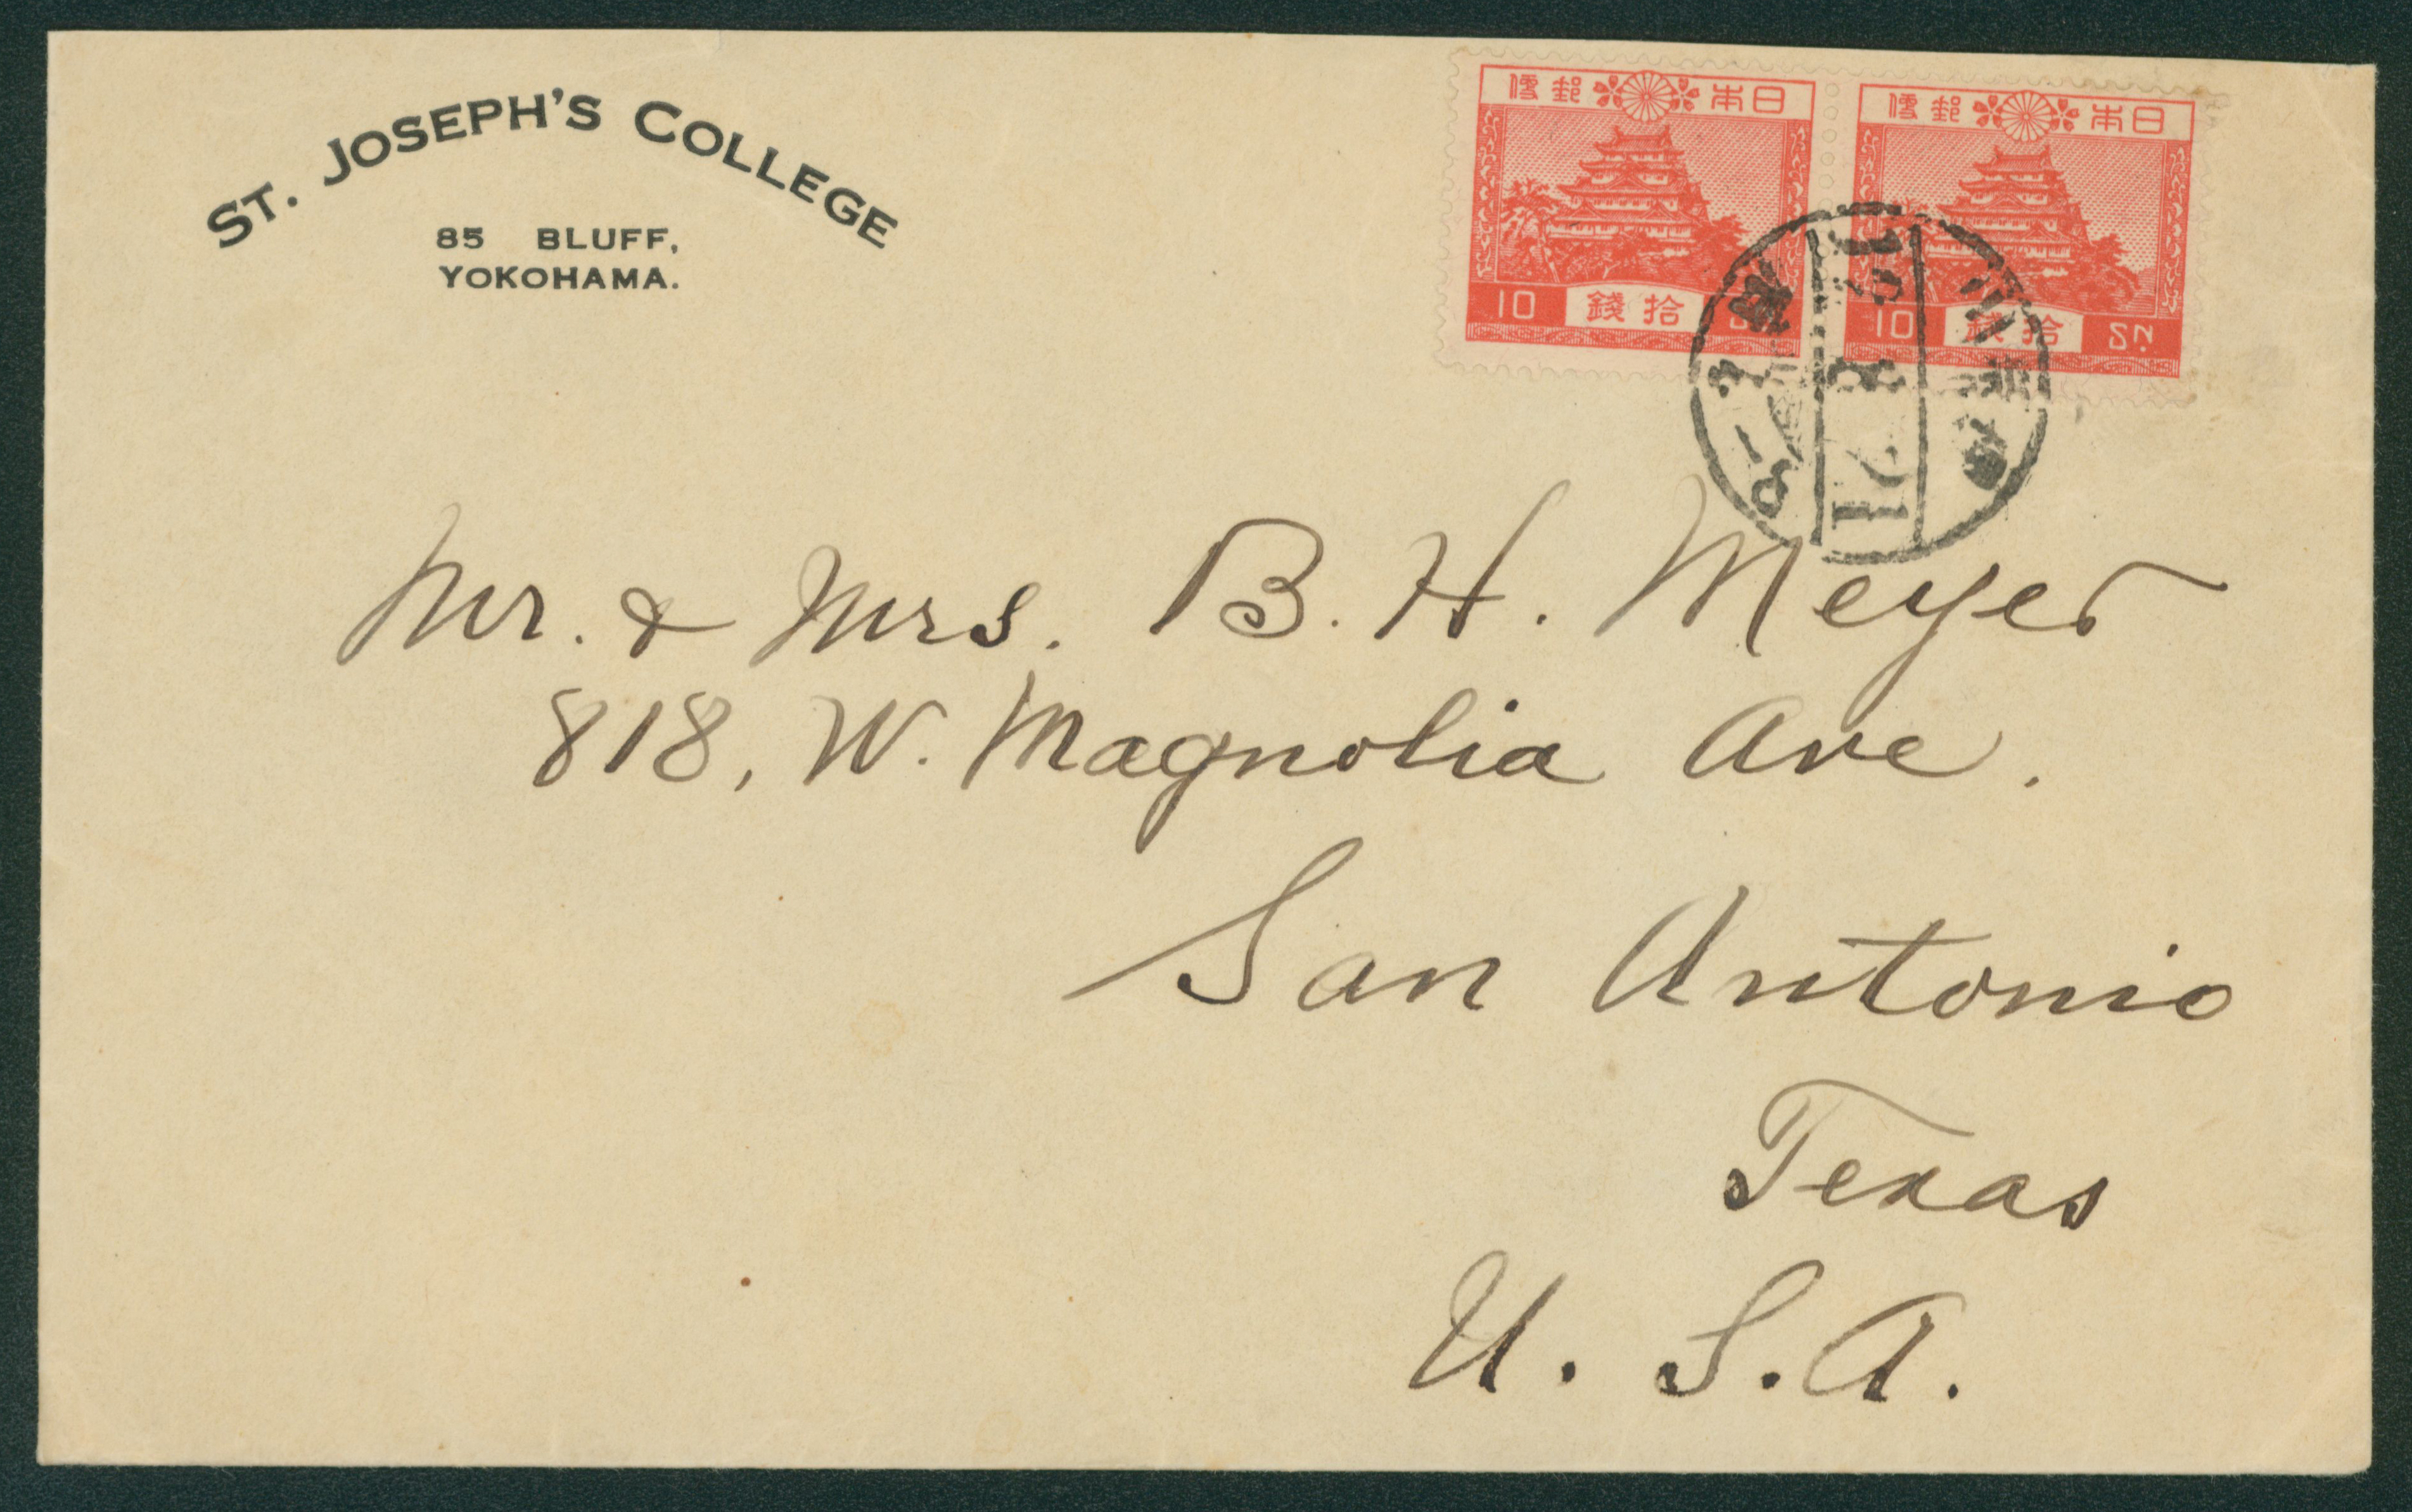 ST. JOSEPH'S COLLEGE
85 BLUFF,
YOKOHAMA.
日本郵便
10 拾錢
日本郵便
10 拾錢 SN.
Mr. & Mrs. B. H. Meyer
818, W. Magnolia Ave.
San Antonio
Texas
U. S. A.